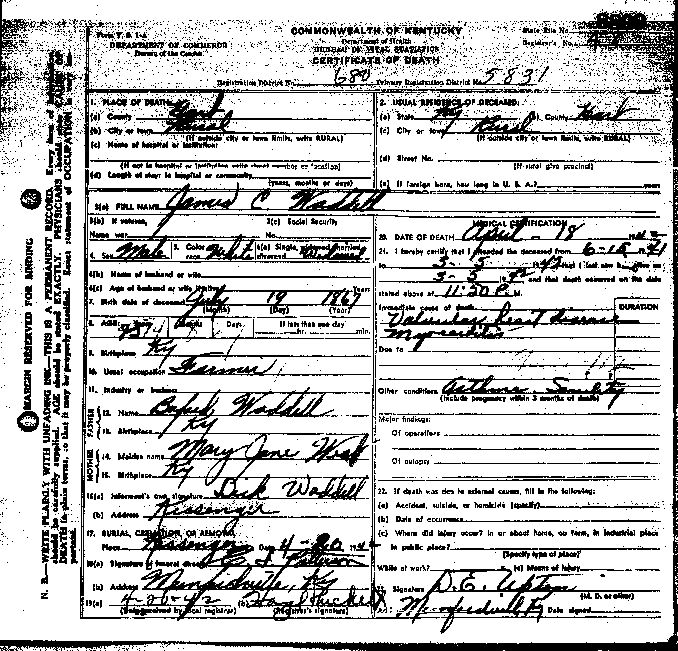 Form V. S. 1-A
DEPARTMENT OF COMMERCE
Bureau of the Census
COMMONWEALTH OF KENTUCKY
Department of Health
BUREAU OF VITAL STATISTICS
CERTIFICATE OF DEATH
State File No.
Registrar's No.
Registration District No. 680 Primary Registration District No. 5831
1. PLACE OF DEATH:
(a) County
(b) City or town Rural
(If outside city or town limits, write RURAL)
(c) Name of hospital or institution:
(If not in hospital or institution write street number or location)
(d) Length of stay: In hospital or community
(years, months or days)
2. USUAL RESIDENCE OF DECEASED:
(a) State Ky (b) County Hart
(c) City or town Rural
(If outside city or town limits, write RURAL)
(d) Street No.
(If rural give precinct)
(e) If foreign born, how long in U. S. A.? years
3(a) FULL NAME James C Waddell
3(b) If veteran, Name war
3(c) Social Security No.
4. Sex Male 5. Color or race White 6(a) Single, widowed, married, divorced Widowed
6(b) Name of husband or wife
6(c) Age of husband or wife if alive Years
7. Birth date of deceased July 19 1867
(Month) (Day) (Year)
8. AGE: Years Months Days If less than one day
hr. min.
9. Birthplace Ky
10. Usual occupation Farmer
11. Industry or business
FATHER
12. Name Waddell
13. Birthplace Ky
MOTHER
14. Maiden name Mary Jane
15. Birthplace Ky
16(a) Informant's own signature Dick Waddell
(b) Address Kessenger
17. BURIAL, CREMATION, OR REMOVAL
Place Kessenger Date 4-20 1942
18(a) Signature of funeral director
(b) Address Munfordville, Ky
19(a) 4-20-42 (b)
(Date received by local registrar) (Registrar's signature)
MEDICAL CERTIFICATION
20. DATE OF DEATH April - 18 1942
21. I hereby certify that I attended the deceased from 6-15 1941
to 3-5 1942 that I last saw
3-5 1942 and that death occurred on the date
stated above at 11:50 P. M.
Immediate cause of death
DURATION
Valvular heart disease
Myocarditis
Due to
Other conditions Asthma. Senility
(Include pregnancy within 3 months of death)
Major findings:
Of operations
Of autopsy
22. If death was due to external causes, fill in the following:
(a) Accident, suicide, or homicide (specify)
(b) Date of occurrence
(c) Where did injury occur? in or about home, on farm, in industrial place
in public place?
(Specify type of place)
While at work? (e) Means of injury
Signature D. E. Upton
(M. D. or other)
Munfordville Ky Date signed
MARGIN RESERVED FOR BINDING
N. B.—WRITE PLAINLY WITH UNFADING INK—THIS IS A PERMANENT RECORD. Every item of information
should be carefully supplied. AGE should be stated EXACTLY. PHYSICIANS should state CAUSE OF
DEATH in plain terms, so that it may be properly classified. Exact statement of OCCUPATION is very im-
portant.